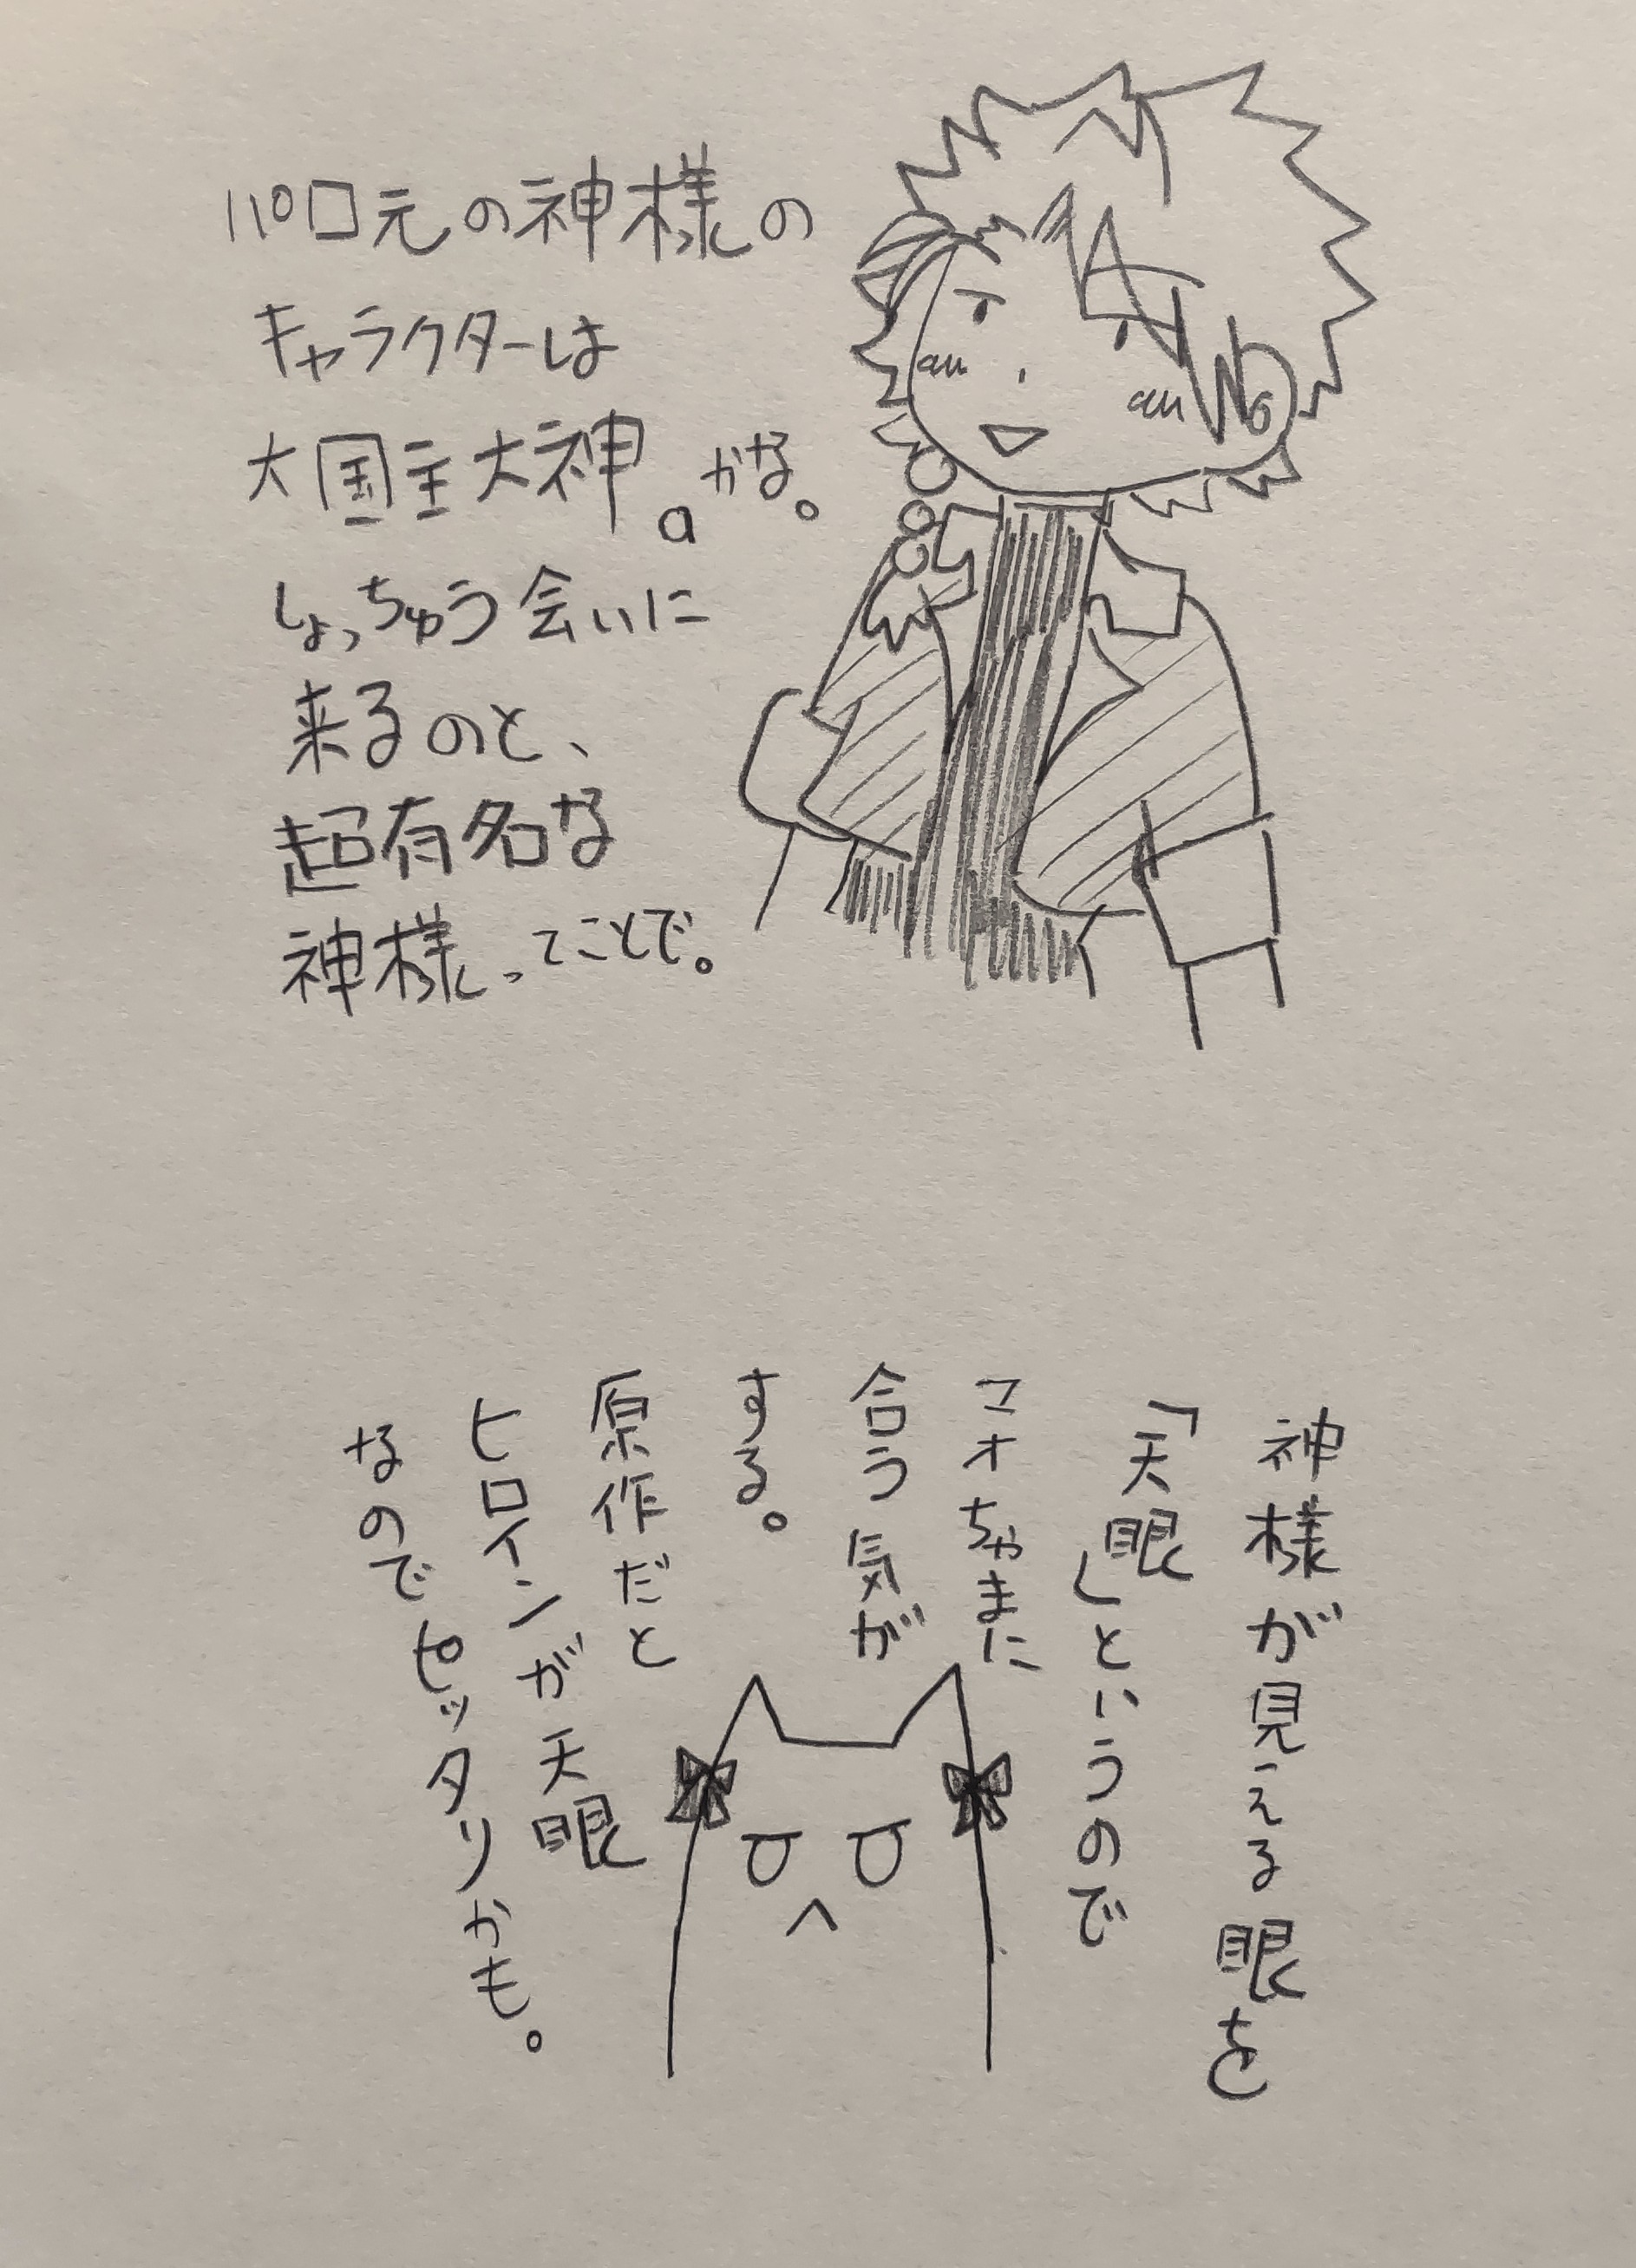 パロ元の神様の
キャラクターは
大国主大神。かな。
しょっちゅう会いに
来るのと、
超有名な
神様ってことで。
神様が見える眼を
「天眼」というので
マオちゃまに
合う気が
する。
原作だと
ヒロインが天眼
なのでピッタリかも。